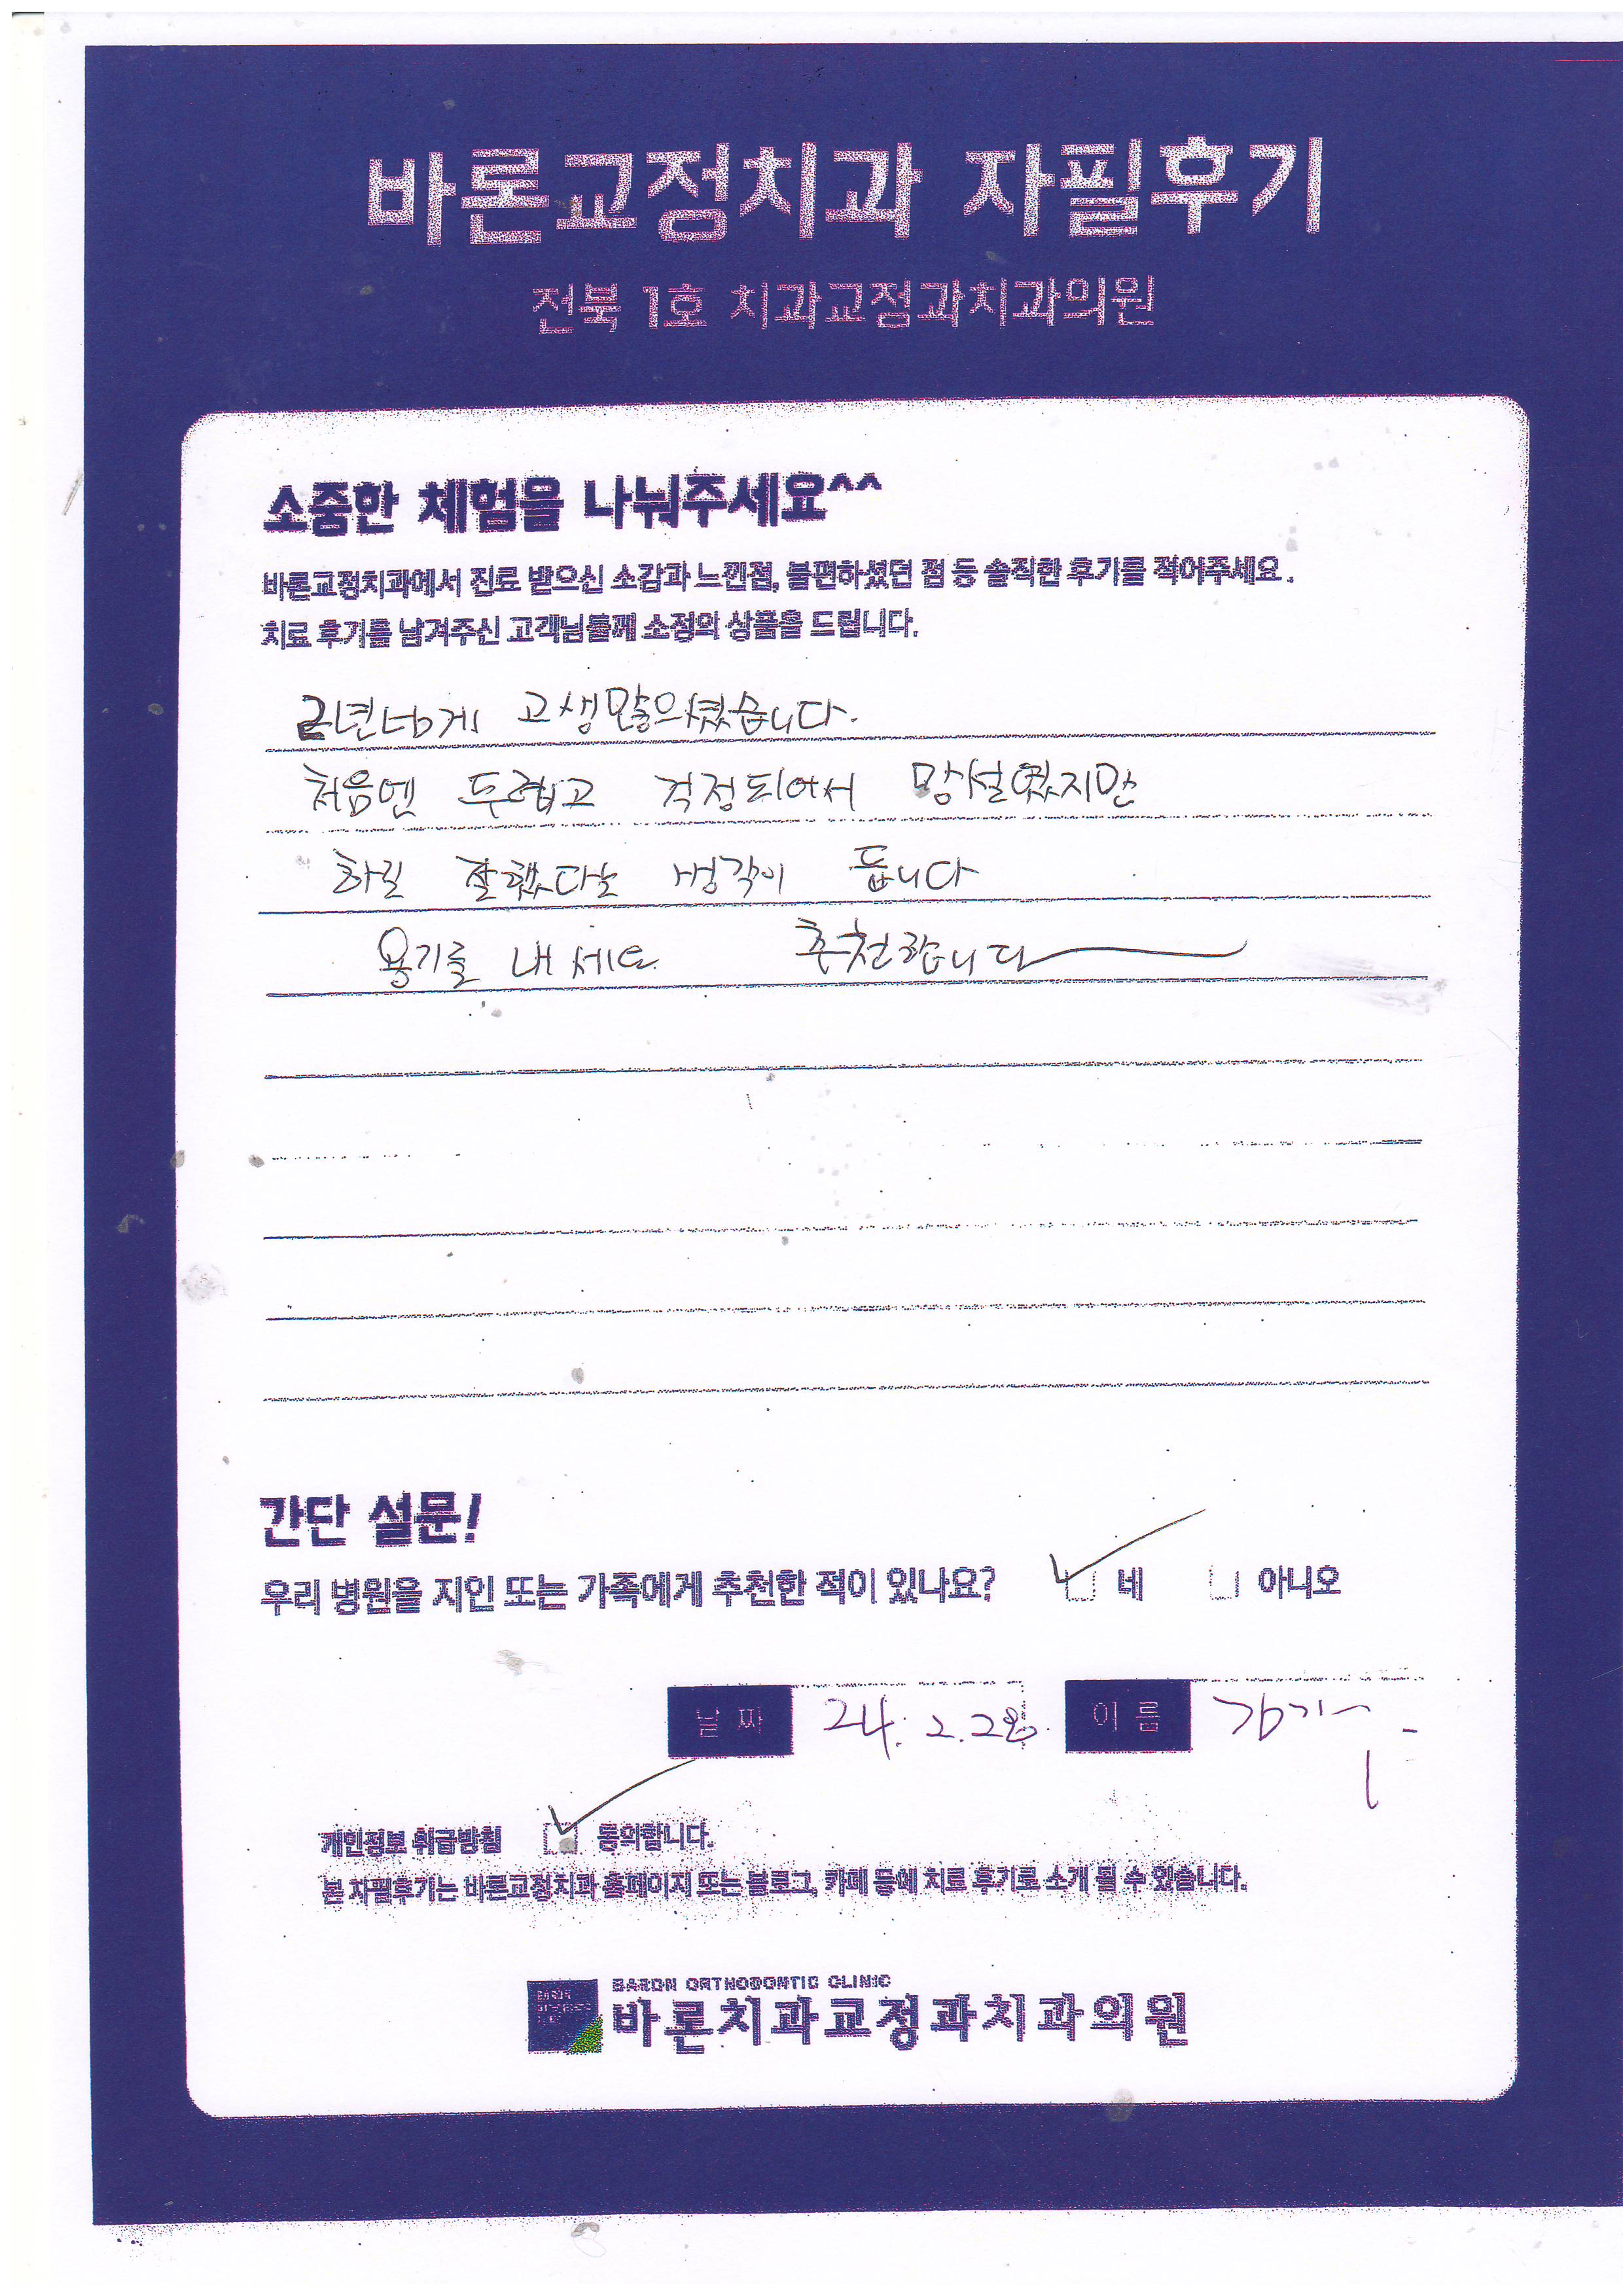 바론교정치과 자필후기
전북 1호 치과교정과치과의원
소중한 체험을 나눠주세요^^
바론교정치과에서 진료 받으신 소감과 느낀점, 불편하셨던 점 등 솔직한 후기를 적어주세요.
치료 후기를 남겨주신 고객님들께 소정의 상품을 드립니다.
2년넘게 고생많으셨습니다.
처음엔 두렵고 걱정되어서 망설였지만
하길 잘했다는 생각이 듭니다
용기를 내세요 추천합니다
간단 설문!
우리 병원을 지인 또는 가족에게 추천한 적이 있나요? 네 아니오
날짜 24. 2. 이름
개인정보 취급방침 동의합니다.
본 자필후기는 바론교정치과 홈페이지 또는 블로그, 카페 등에 치료 후기로 소개 될 수 있습니다.
BARON ORTHODONTIC CLINIC
바른치과교정과치과의원